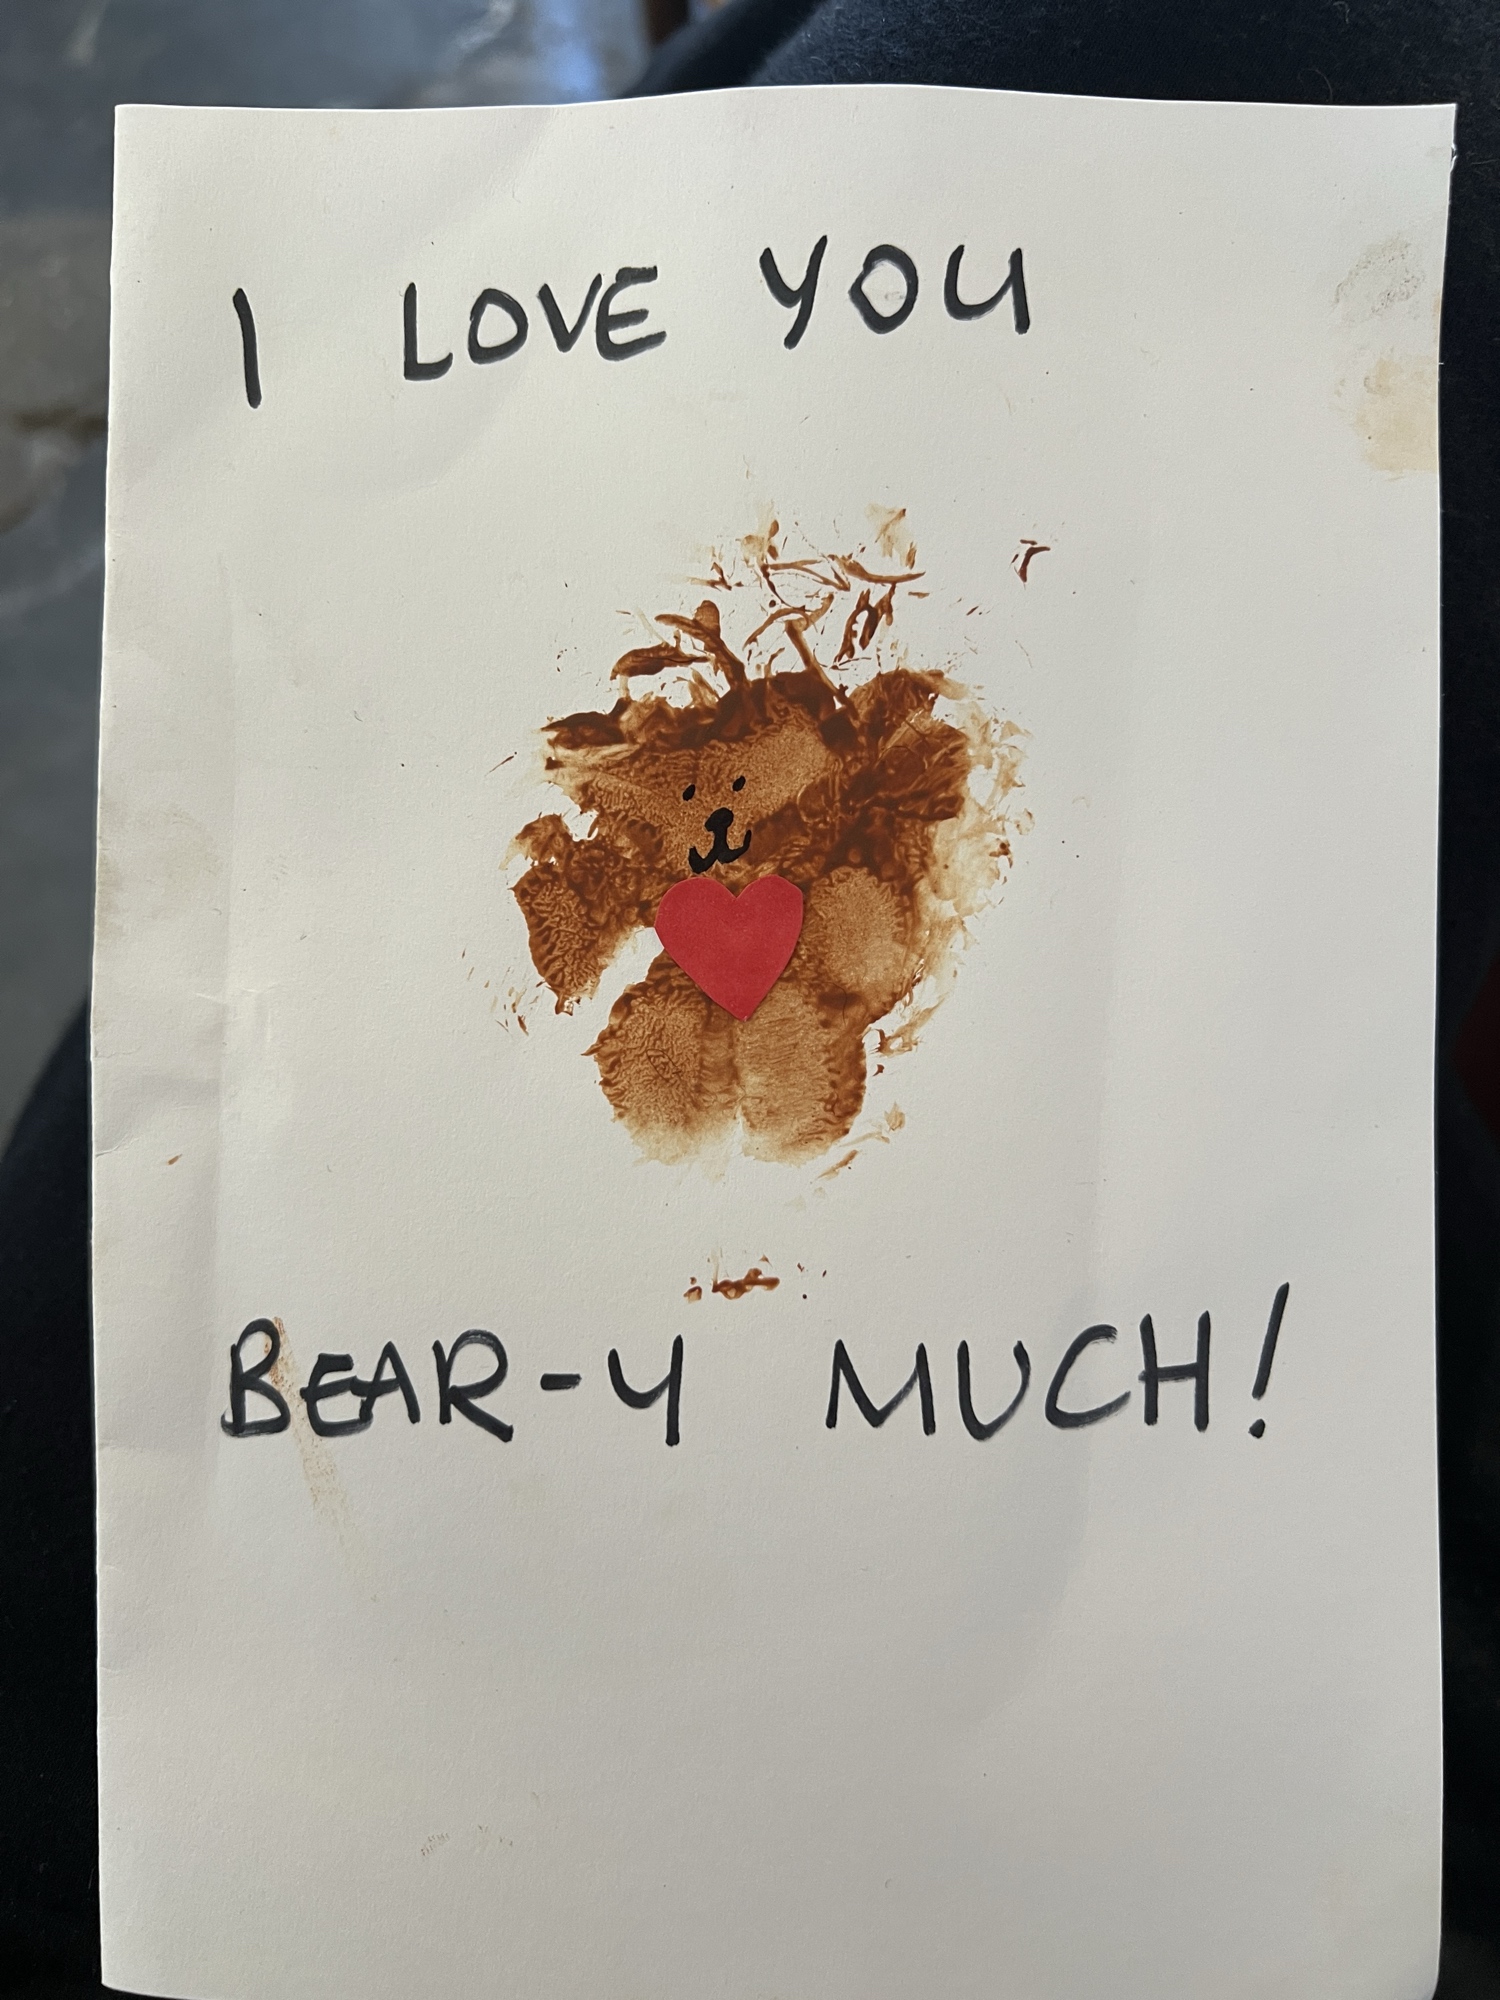 I LOVE YOU
BEAR-Y MUCH!